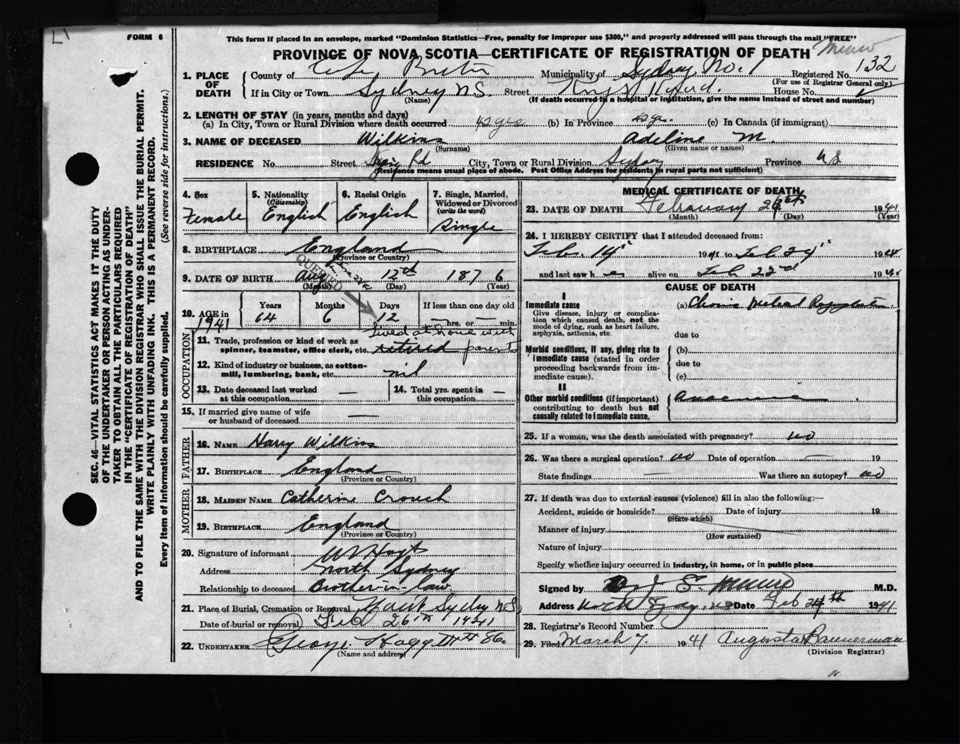 FORM 6
This form if placed in an envelope, marked "Dominion Statistics—Free, penalty for improper use $300," and properly addressed will pass through the mail "FREE"
PROVINCE OF NOVA SCOTIA—CERTIFICATE OF REGISTRATION OF DEATH
132
1. PLACE OF DEATH County of Cape Breton Municipality of Sydney No. 1 Registered No.
(For use of Registrar General only)
If in City or Town Sydney NS. Street House No.
(Name) (If death occurred in a hospital or institution, give the name instead of street and number)
2. LENGTH OF STAY (in years, months and days)
(a) In City, Town or Rural Division where death occurred (b) In Province (c) In Canada (if immigrant)
3. NAME OF DECEASED Wilkins Adeline M.
(Surname) (Given name or names)
RESIDENCE No. Street Rd City, Town or Rural Division Sydney Province NS
(Residence means usual place of abode. Post Office Address for residents in rural parts not sufficient)
4. Sex Female
5. Nationality (Citizenship) English
6. Racial Origin English
7. Single, Married, Widowed or Divorced (write the word) Single
8. BIRTHPLACE England
(Province or Country)
QUERIED
9. DATE OF BIRTH Aug 12th 1876
(Month) (Day) (Year)
10. AGE in 1941 Years 64 Months 6 Days 12 If less than one day old hrs. or min.
OCCUPATION
lived at home with parents
11. Trade, profession or kind of work as spinner, teamster, office clerk, etc. retired
12. Kind of industry or business, as cotton-mill, lumbering, bank, etc. nil
13. Date deceased last worked at this occupation —
14. Total yrs. spent in this occupation —
15. If married give name of wife or husband of deceased
FATHER
16. NAME Harry Wilkins
17. BIRTHPLACE England
(Province or Country)
MOTHER
18. MAIDEN NAME Catherine Crouch
19. BIRTHPLACE England
(Province or Country)
20. Signature of informant
Address North Sydney
Relationship to deceased Brother-in-law
21. Place of Burial, Cremation or Removal Sydney N.S.
Date of burial or removal Feb 26th 1941
22. UNDERTAKER George
(Name and address)
MEDICAL CERTIFICATE OF DEATH
23. DATE OF DEATH February 24th 1941
(Month) (Day) (Year)
24. I HEREBY CERTIFY that I attended deceased from:
Feb. 14 19 to Feb 24 19
and last saw h alive on Feb 22nd 19
CAUSE OF DEATH
I
Immediate cause (a)
Give disease, injury or complication which caused death, not the mode of dying, such as heart failure, asphyxia, asthenia, etc.
due to
Morbid conditions, if any, giving rise to immediate cause (stated in order proceeding backwards from immediate cause).
(b)
due to
(c)
II
Other morbid conditions (if important) contributing to death but not causally related to immediate cause.
Anaemia
25. If a woman, was the death associated with pregnancy? no
26. Was there a surgical operation? no Date of operation — 19
State findings — Was there an autopsy? no
27. If death was due to external causes (violence) fill in also the following:—
Accident, suicide or homicide? Date of injury 19
(State which)
Manner of injury
(How sustained)
Nature of injury
Specify whether injury occurred in Industry, in home, or in public place
Signed by M.D.
Address Date Feb 24th 1941
28. Registrar's Record Number
29. Filed March 7, 1941 Augusta Bannerman
(Division Registrar)
SEC. 46—VITAL STATISTICS ACT MAKES IT THE DUTY
OF THE UNDERTAKER OR PERSON ACTING AS UNDER-
TAKER TO OBTAIN ALL THE PARTICULARS REQUIRED
IN THE "CERTIFICATE OF REGISTRATION OF DEATH"
AND TO FILE THE SAME WITH THE DIVISION REGISTRAR WHO SHALL ISSUE THE BURIAL PERMIT.
WRITE PLAINLY WITH UNFADING INK. THIS IS A PERMANENT RECORD.
Every item of information should be carefully supplied. (See reverse side for instructions.)